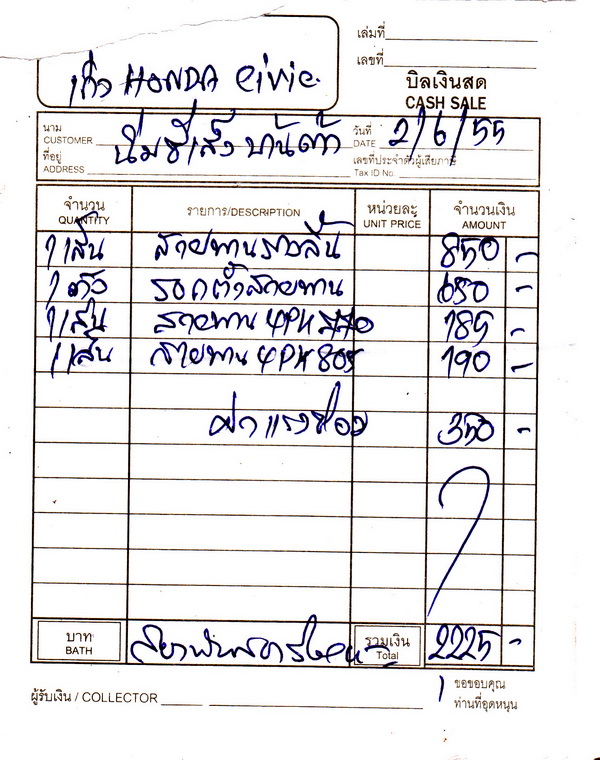 เล่มที่
เลขที่
เก๋ง HONDA civic
บิลเงินสด
CASH SALE
นาม
CUSTOMER
วันที่ 2/6/55
DATE
ที่อยู่
ADDRESS
เลขที่ประจำตัวผู้เสียภาษี
Tax ID No.
จำนวน รายการ/DESCRIPTION หน่วยละ จำนวนเงิน
QUANTITY UNIT PRICE AMOUNT
1 เส้น สายพานราวลิ้น 850 -
1 ตัว รอกตั้งสายพาน 650 -
1 เส้น สายพาน 4PK 770 185 -
1 เส้น สายพาน 4PK 805 190 -
ค่าแรงช่าง 350 -
บาท รวมเงิน 2225 -
BATH Total
ผู้รับเงิน / COLLECTOR
ขอขอบคุณ
ท่านที่อุดหนุน